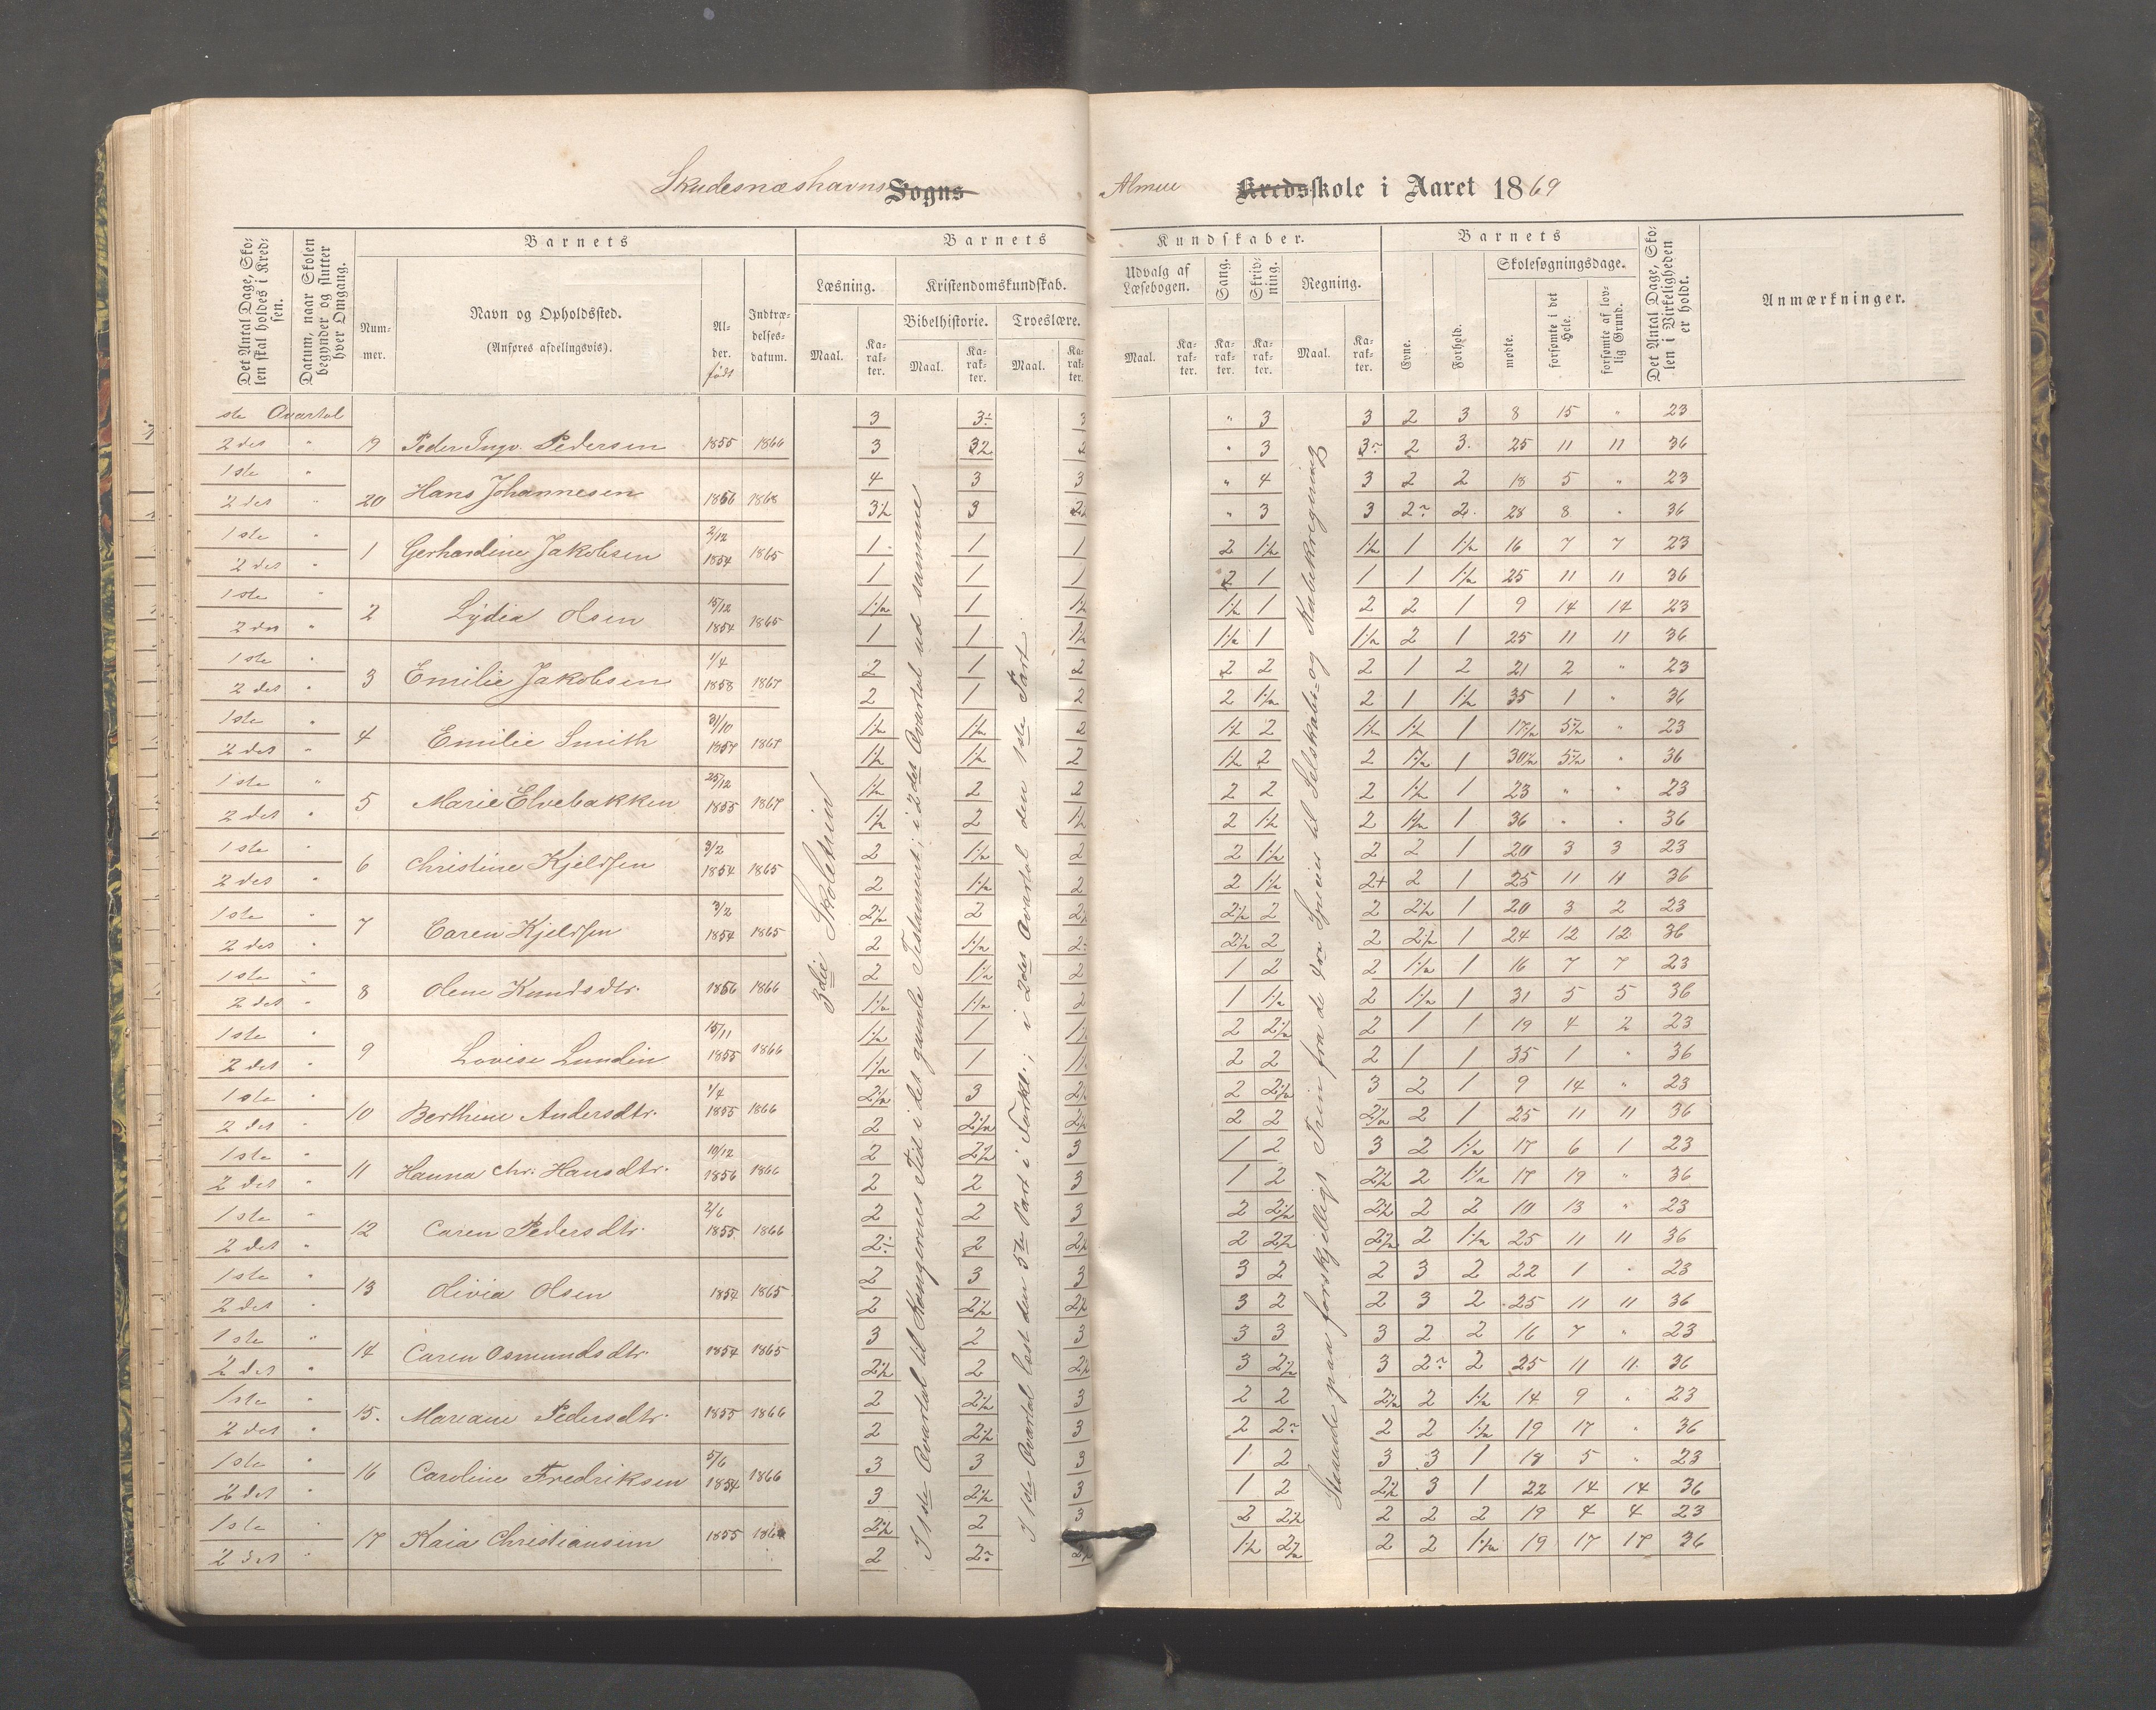 Skudesnæshavns Sogns Almue Kredsskole i Aaret 1869
Det Antal Dage, Skolen skal holdes i Kredsen. Datum, naar Skolen begynder og slutter hver Omgang. Barnets Barnets Kundskaber. Barnets Det Antal Dage, Skolen i Virkeligheden er holdt. Anmærkninger.
Nummer. Navn og Opholdssted. (Anføres afdelingsvis). Alder. født Indtrædelsesdatum. Læsning. Kristendomskundskab. Udvalg af Læsebogen. Sang. Skrivning. Regning. Evne. Forhold. Skolesøgningsdage.
Bibelhistorie. Troeslære. mødte. forsømte i det Hele. forsømte af lovlig Grund.
Maal. Karakter. Maal. Karakter. Maal. Karakter. Maal. Karakter. Karakter. Karakter. Maal. Karakter.
ste Qvartal 3 3÷ 3 " 3 3 2 3 8 15 " 23
2det " 19 Peder Ingv. Pedersen 1855 1866 3 32 2 " 3 3~ 2 3. 25 11 11 36
1ste " 4 3 3 " 4 3 2 2 18 5 " 23
2det " 20 Hans Johannesen 1856 1868 3½ 3 2½ " 3 3 2~ 2. 28 8 " 36
1ste " 2/12 1 1 1 2 1½ 1½ 1 1½ 16 7 7 23
2det " 1 Gerhardine Jakobsen 1854 1865 1 1 1 2 1 1 1 1½ 25 11 11 36
1ste " 15/12 1½ 1 1½ 1½ 1 2 2 1 9 14 14 23
2det " 2 Lydia Olsen 1854 1865 1 1 1½ 1½ 1 1½ 2 1 25 11 11 36
1ste " 1/4 2 1 2 2 2 2 1 2 21 2 " 23
2det " 3 Emilie Jakobsen 1858 1867 2 1 2 2 1½ 2 1 1½ 35 1 " 36
1ste " 31/10 1½ 1½ 2 1½ 2 1½ 1½ 1 17½ 5½ " 23
2det " 4 Emilie Smith 1857 1867 1½ 1½ 2 1½ 2 2 1½ 1 30½ 5½ " 36
1ste " 25/12 1½ 2 2 2 2 2 1½ 1 23 " " 23
2det " 5 Marie Elvebakken 1855 1867 1½ 2 1½ 2 1½ 2 1½ 1 36 " " 36
1ste " 3/2 2 1½ 2 2 1½ 2 2 1 20 3 3 23
2det " 6 Christine Kjeldsen 1854 1865 2 1½ 2 2 1½ 2+ 2 1 25 11 11 36
1ste " 3/2 2½ 2 2½ 2½ 2 2 2½ 1 20 3 2 23
2det " 7 Caren Kjeldsen 1854 1865 2 1½ 2 2½ 2 2 2½ 1 24 12 12 36
1ste " 2 1½ 2 1 2 2 1½ 1 16 7 7 23
2det " 8 Olene Knudsdtr. 1856 1866 1½ 1½ 2 1 1½ 2 1½ 1 31 5 5 36
1ste " 15/11 1½ 1 1½ 2 2½ 2 1 1 19 4 2 23
2det " 9 Lovise Lundin 1855 1866 1½ 1 1½ 2 2 2 1 1 35 1 " 36
1ste " 1/4 2½ 3 2½ 2 2½ 3 2 1 9 14 " 23
2det " 10 Berthine Andersdtr. 1855 1866 2 2½ 2½ 2 2 2½ 2 1 25 11 11 36
1ste " 10/12 2 2½ 3 1 2 3 2 1½ 17 6 1 23
2det " 11 Hanna Chr. Hansdtr. 1856 1866 2 2 3 1 2 2½ 2 1½ 17 19 " 36
1ste " 2/6 2 2 3 2 2½ 2½ 2 2 10 13 " 23
2det " 12 Caren Pedersdtr. 1855 1866 2÷ 2 2½ 2 2½ 2½ 2 1½ 25 11 11 36
1ste " 2 3 3 3 2 2 3 2 22 1 " 23
2det " 13 Olivia Olsen 1854 1865 2 2½ 2½ 3 2 2 3 2 25 11 11 36
1ste " 3 2 3 3 3 3 2 2 16 7 " 23
2det " 14 Caren Osmundsdtr. 1854 1865 2½ 2 2½ 3 2½ 3 2~ 2 25 11 11 36
1ste " 2 2½ 3 2 2 2½ 2 1½ 14 9 " 23
2det " 15. Mariane Pedersdtr. 1855 1866 2 2½ 3 2 2~ 2 2 1½ 19 17 " 36
1ste " 5/6 3 3 3 1 2 3 3 1 18 5 " 23
2det " 16 Caroline Fredriksen 1854 1866 3 2½ 3 1 2 2½ 3 1 22 14 14 36
1ste " 2½ 2 3 2 2½ 2 2 2 19 4 4 23
2det " 17 Kaia Christiansen 1855 186 2 2~ 2½ 1½ 2½ 2 2 1½ 19 17 17 36
3die Skoletrin
I 1ste Qvartal til Kongernes Tid i det gamle Testament; i 2det Qvartal ud samme
I 1ste Qvartal læst den 5te Part i Forkl.; i 2det Qvartal den 1ste Part.
Staaende paa forskjelligt Trin fra de fire Species til Selskabs- og Kabekregning